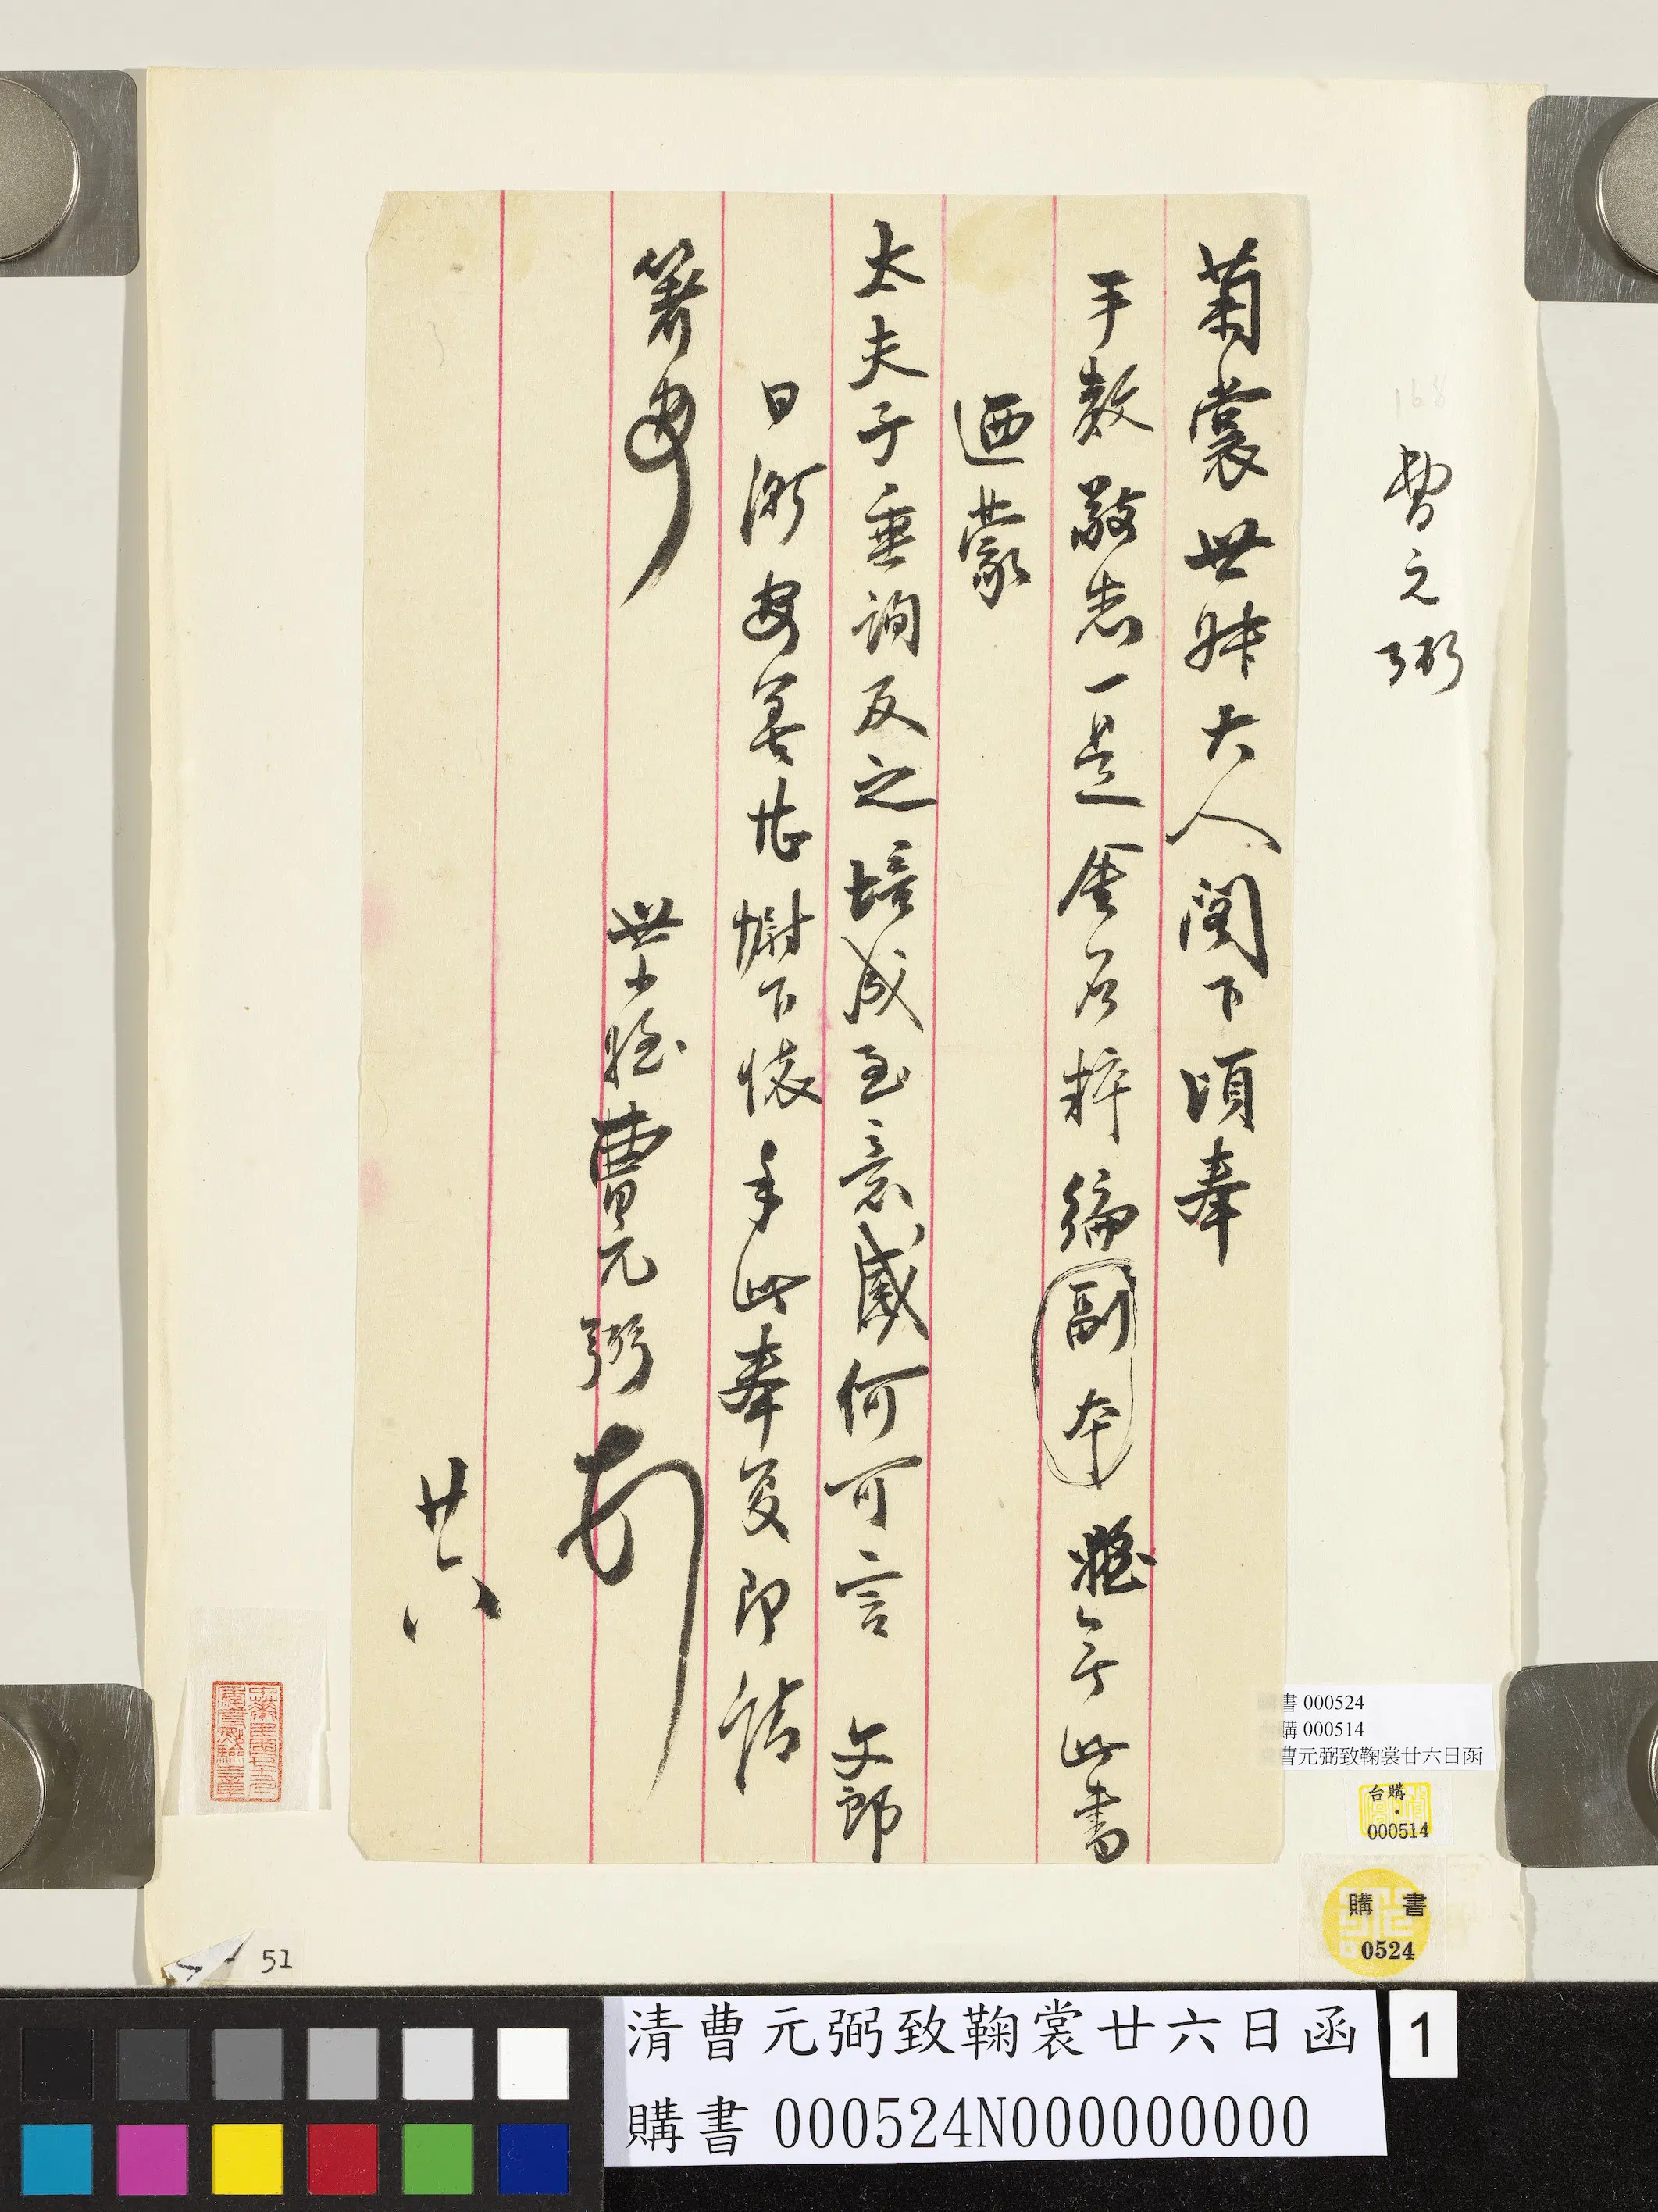 曹元弼
菊裳世叔大人閣下頃奉
手教敬悉一是金石粹編副本姪無此書
迺蒙
太夫子垂詢及之培成至意感何可言 文郎
日漸安善甚慰下懷手此奉复即請
箸安
世小姪曹元弼
廿六
書 000524
購 000514
曹元弼致鞠裳廿六日函
台購
000514
購 書
0524
51
清曹元弼致鞠裳廿六日函
1
購書 000524N000000000